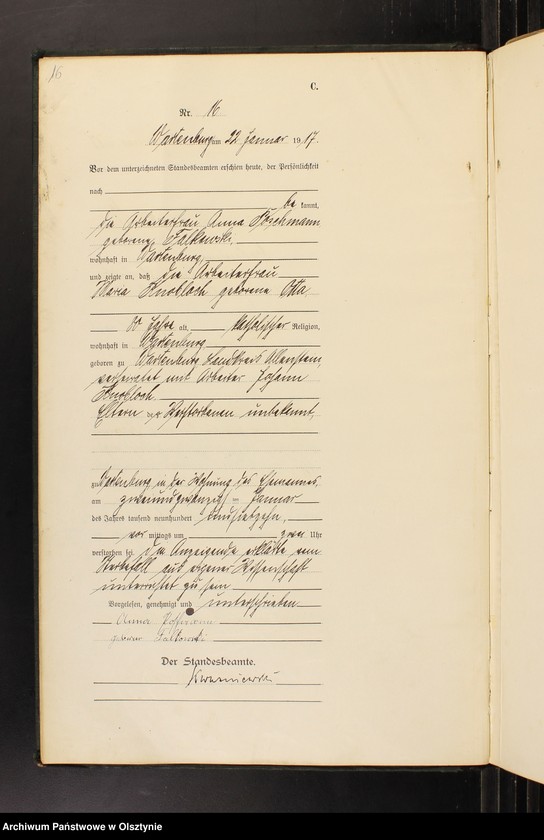 16
C.
Nr. 16
Wartenburg am 22 Januar 1917.
Vor dem unterzeichneten Standesbeamten erschien heute, der Persönlichkeit
nach
be kannt,
die Arbeiterfrau Anna
geborene Falkowski,
wohnhaft in Wartenburg,
und zeigte an, daß die Arbeiterfrau
Maria Knobloch geborene Otta
Jahre alt, katholischer Religion,
wohnhaft in Wartenburg
geboren zu Wartenburg Landkreis Allenstein,
verheiratet mit Arbeiter Johann
Knobloch
Eltern der Verstorbenen unbekannt,
zu Wartenburg in der Wohnung des Ehemannes
am zweiundzwanzigsten Januar
des Jahres tausend neunhundert und siebzehn,
vor mittags um zwei Uhr
verstorben sei. Die Anzeigende erklärte vom
Sterbefall aus eigener Wissenschaft
unterrichtet zu sein
Vorgelesen, genehmigt und unterschrieben
Anna
geborene Falkowski
Der Standesbeamte.
Archiwum Państwowe w Olsztynie